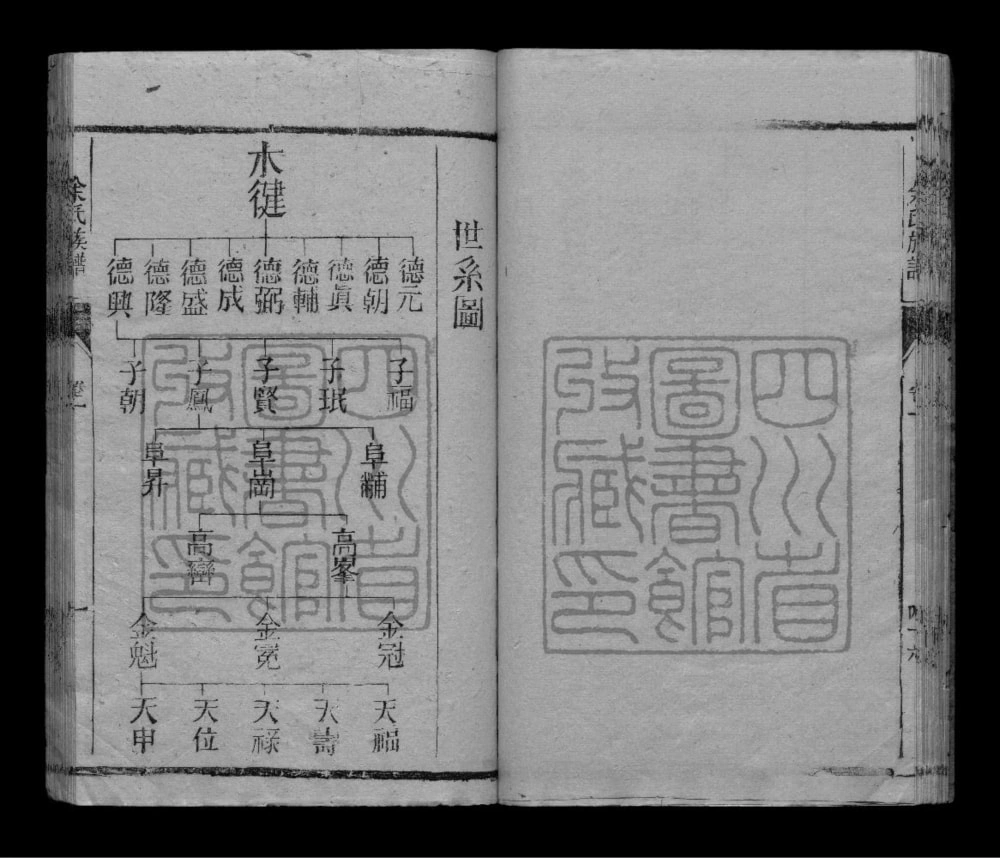 世系圖
木健
德元
德朝
德眞
德輔
德弼
德成
德盛
德隆
德興
子福
子珉
子賢
子鳳
子朝
阜黼
阜崗
阜昇
高峯
高巒
金冠
金冕
金魁
天福
天壽
天祿
天位
天申
余氏族譜
卷一
一
四川省
圖書館
收藏印
四川省
圖書館
收藏印